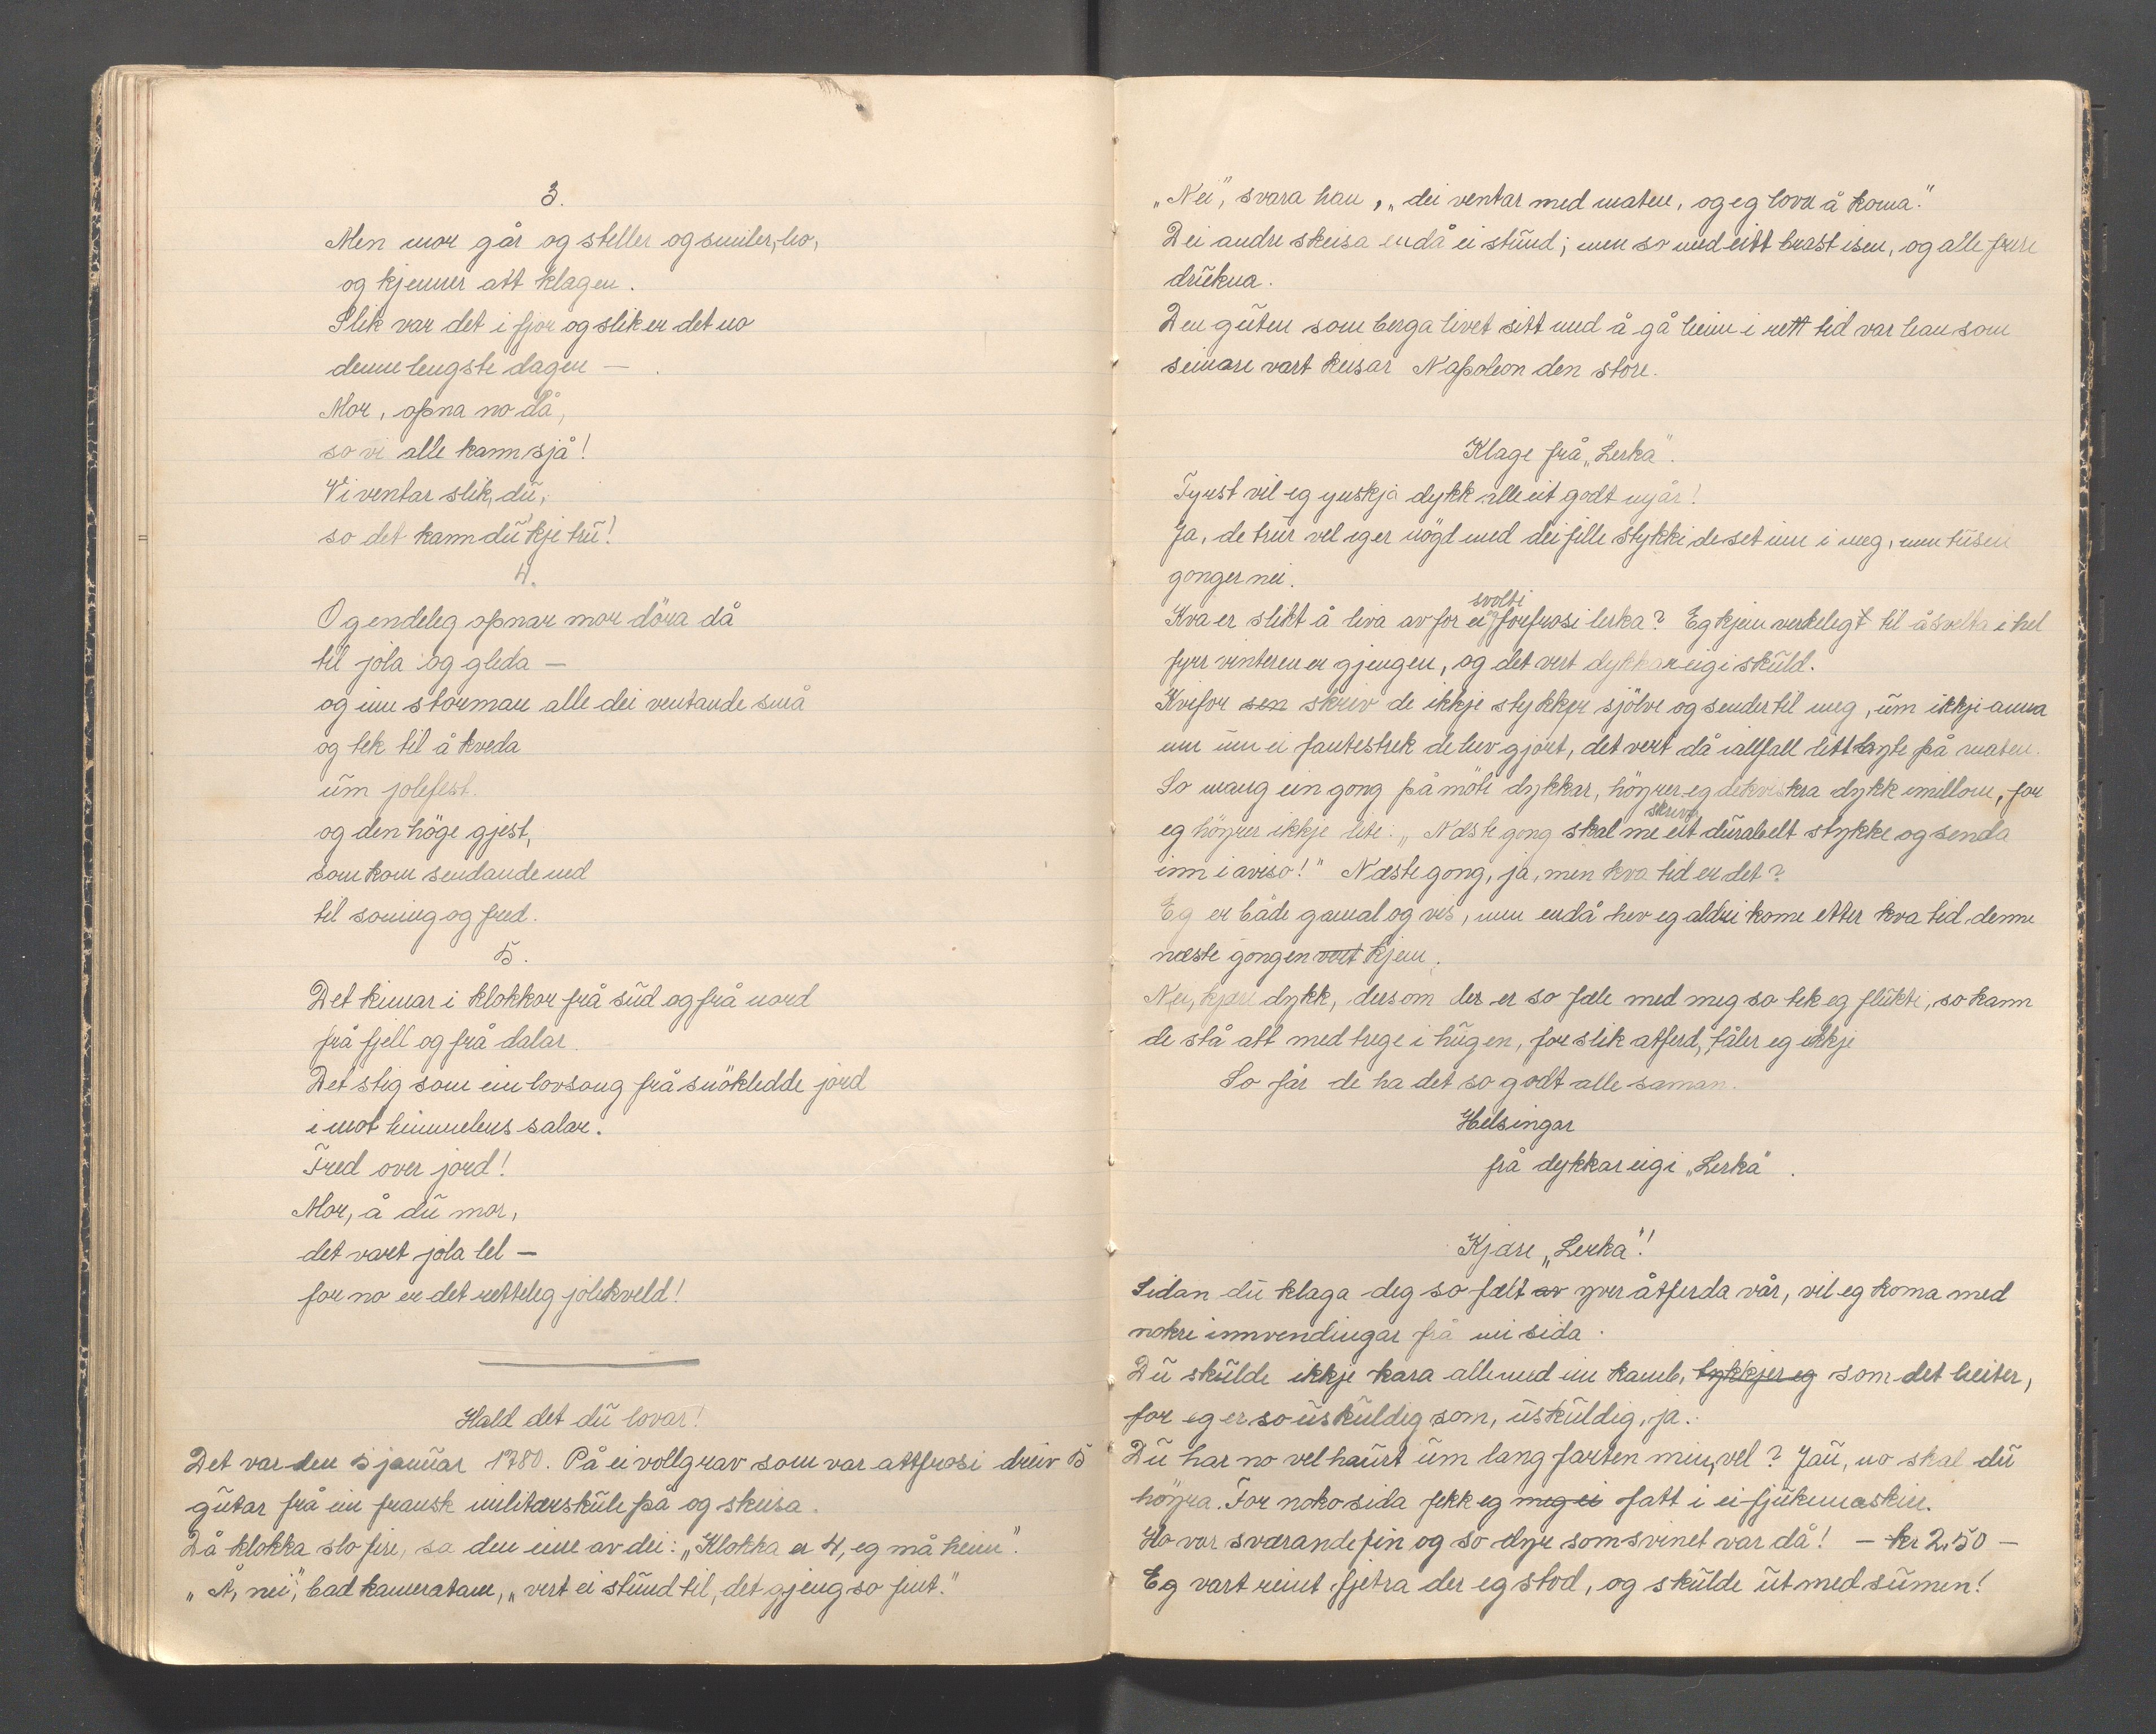 3.
Men mor går og steller og smiler, ho,
og kjenner att klagen.
Slik var det i fjor og slik er det no
denne lengste dagen —
Mor, opna no då,
so vi alle kann sjå!
Vi ventar slik, du,
so det kann du 'kje tru!
4.
Og endeleg opnar mor döra då
til jola og gleda —
og inn stormar alle dei ventande små
og tek til å kveda
um jolefest.
og den höge gjest,
som kom sendande ned
til soning og fred.
5.
Det kimar i klokkor frå sud og frå nord
frå fjell og frå dalar.
Det stig som ein lovsong frå snökledde jord
imot himmelens salar.
Fred over jord!
Mor, å du mor,
det vart jola lel —
for no er det retteleg jolekveld!
Hald det du lovar!
Det var den 5 januar 1780. På ei vollgrav som var attfrosi dreiv 5
gutar frå ein fransk militærskule på og skeisa.
Då klokka slo fire, sa den eine av dei: „Klokka er 4, eg må heim".
„Å, nei", bad kameratane, „vert ei stund til, det gjeng so fint."
„Nei", svara han, „dei ventar med maten, og eg lova å koma."
Dei andre skeisa endå ei stund; men so med eitt brast isen, og alle fire
drukna.
Den guten som berga livet sitt med å gå heim i rett tid var han som
seinare vart keisar Napoleon den store.
Klage frå „Lerka".
Fyrst vil eg ynskja dykk alle eit godt nyår!
Ja, de trur vel eg er nögd med dei fille stykki de set inn i meg, men tusen
gonger nei.
svolti
Kva er slikt å liva av for ei og forfrosi lerka? Eg kjem verkelegt til å svelta i hel
fyrr vinteren er gjengen, og det vert dykkar eigi skuld.
Kvifor sen skriv de ikkje stykker sjölve og sender til meg, um ikkje anna
enn um ei fantestrek de hev gjort, det vert då iallfall litt byte på maten.
So mang ein gong på möte dykkar, höyrer eg de kviskra dykk imillom, for
skriva
eg höyrer ikkje lite: „Næste gong skal me eit durabelt stykke og senda
inn i aviso!" Næste gong, ja, men kva tid er det?
Eg er både gamal og vis, men endå hev eg aldri kome etter kva tid denne
næste gongen vert kjem.
Nei, kjære dykk, dersom der er so fæle med meg so tek eg flukti, so kann
de stå att med trege i hugen, for slik åtferd, tåler eg ikkje
So får de ha det so godt alle saman.
Helsingar
frå dykkar eigi „Lerka".
Kjære „Lerka"!
Sidan du klaga deg so fælt av yver åtferda vår, vil eg koma med
nokre innvendingar frå mi sida.
Du skulde ikkje kara alle med ein kamb, tykkjer eg som det heiter,
for eg er so uskuldig som, uskuldig, ja.
Du har no vel haurt um langfarten min, vel? Jau, no skal du
höyra. For noko sida fekk eg meg ei fatt i ei sjukmaskin.
Ho var sværande fin og so dyr som svinet var då! — kr 2,50 —
Eg vart reint fjetra der eg stod, og skulde ut med sumen!